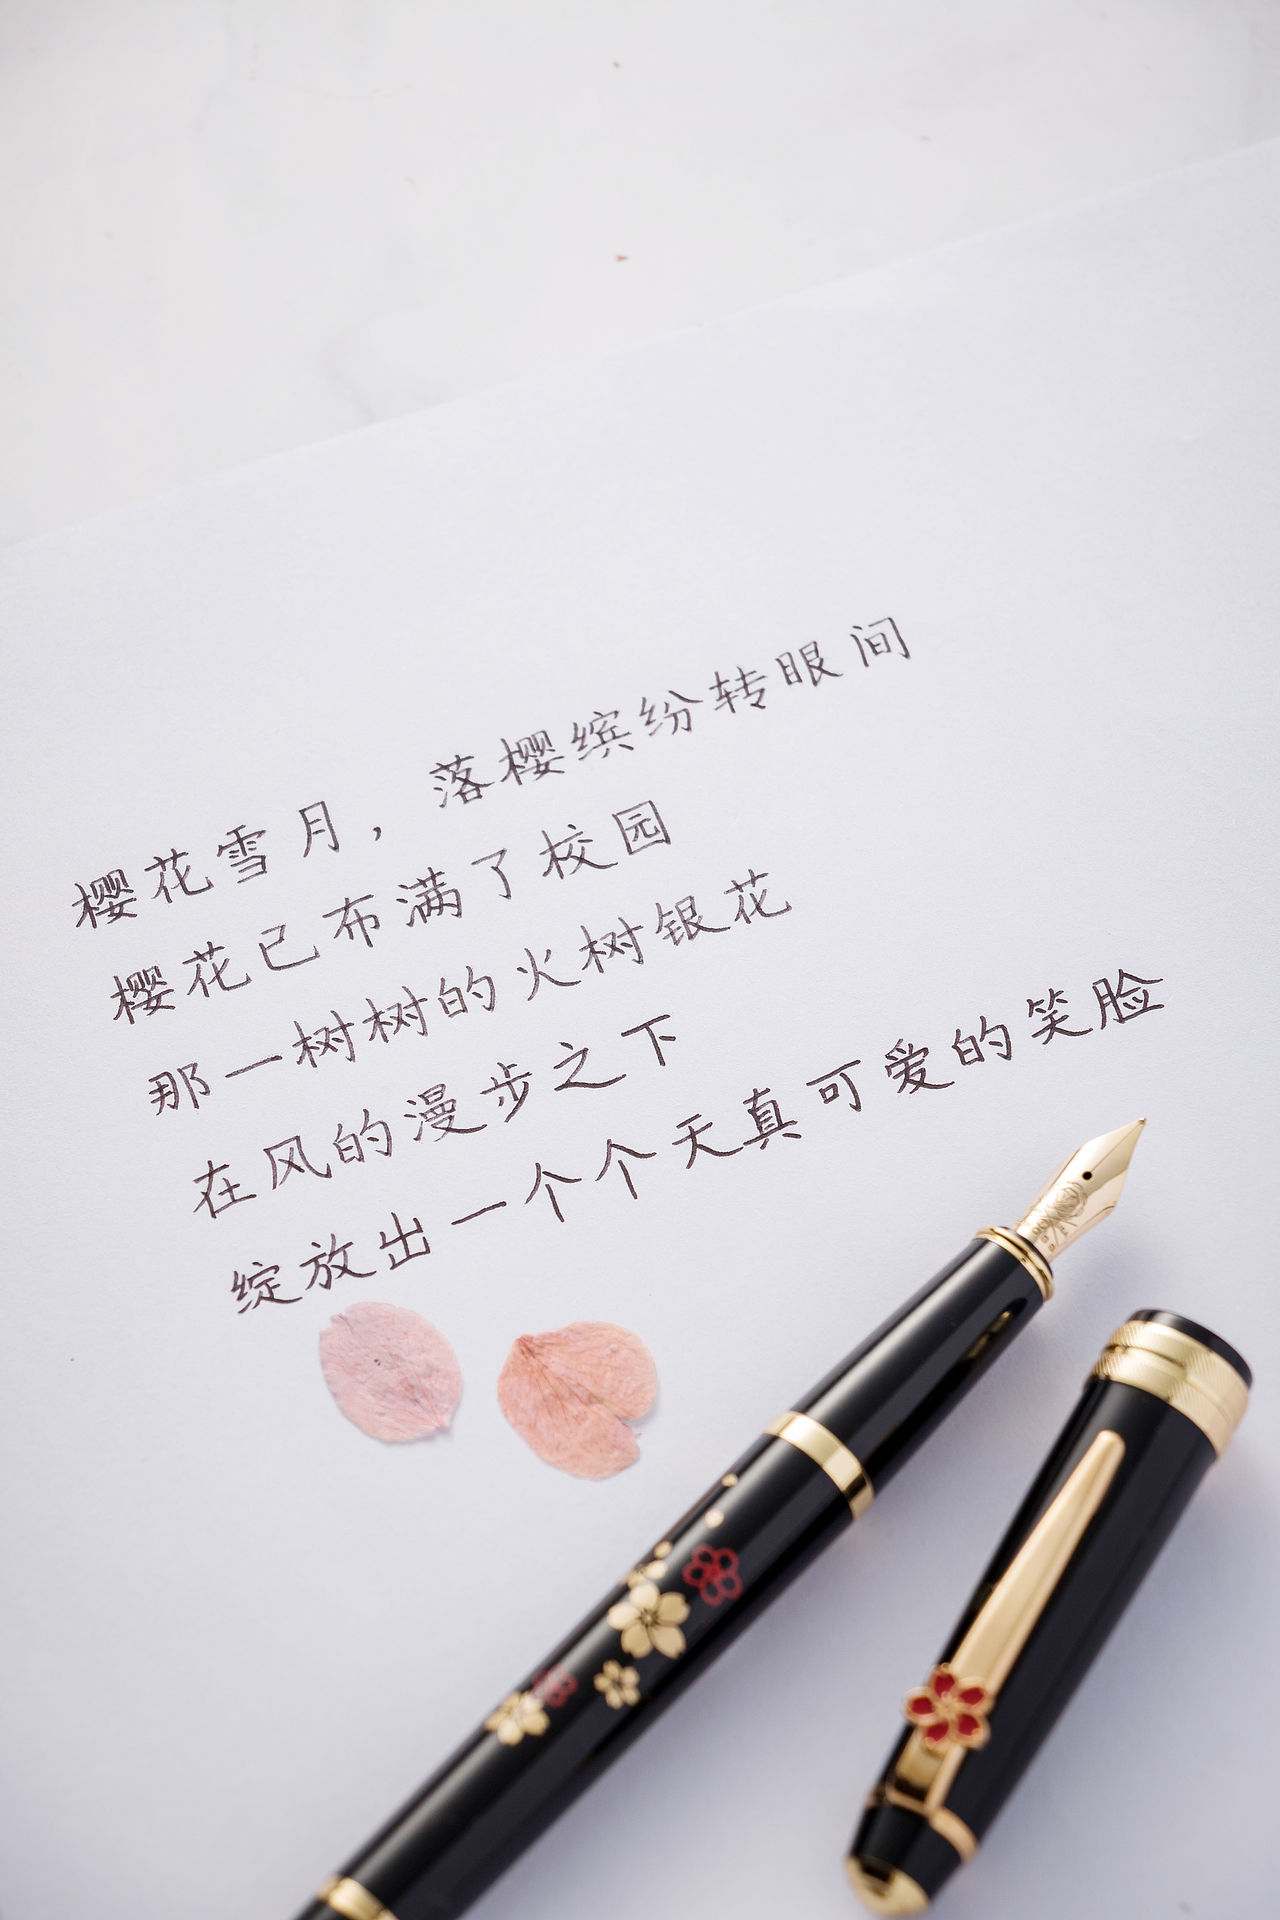 樱花雪月，落樱缤纷转眼间
樱花已布满了校园
那一树树的火树银花
在风的漫步之下
绽放出一个个天真可爱的笑脸